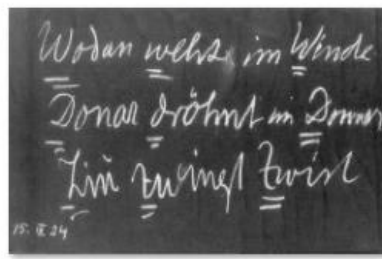 Wodan weht im Winde
Donar dröhnt im Donner
Ziu zwingt Zwist
15. IX. 24